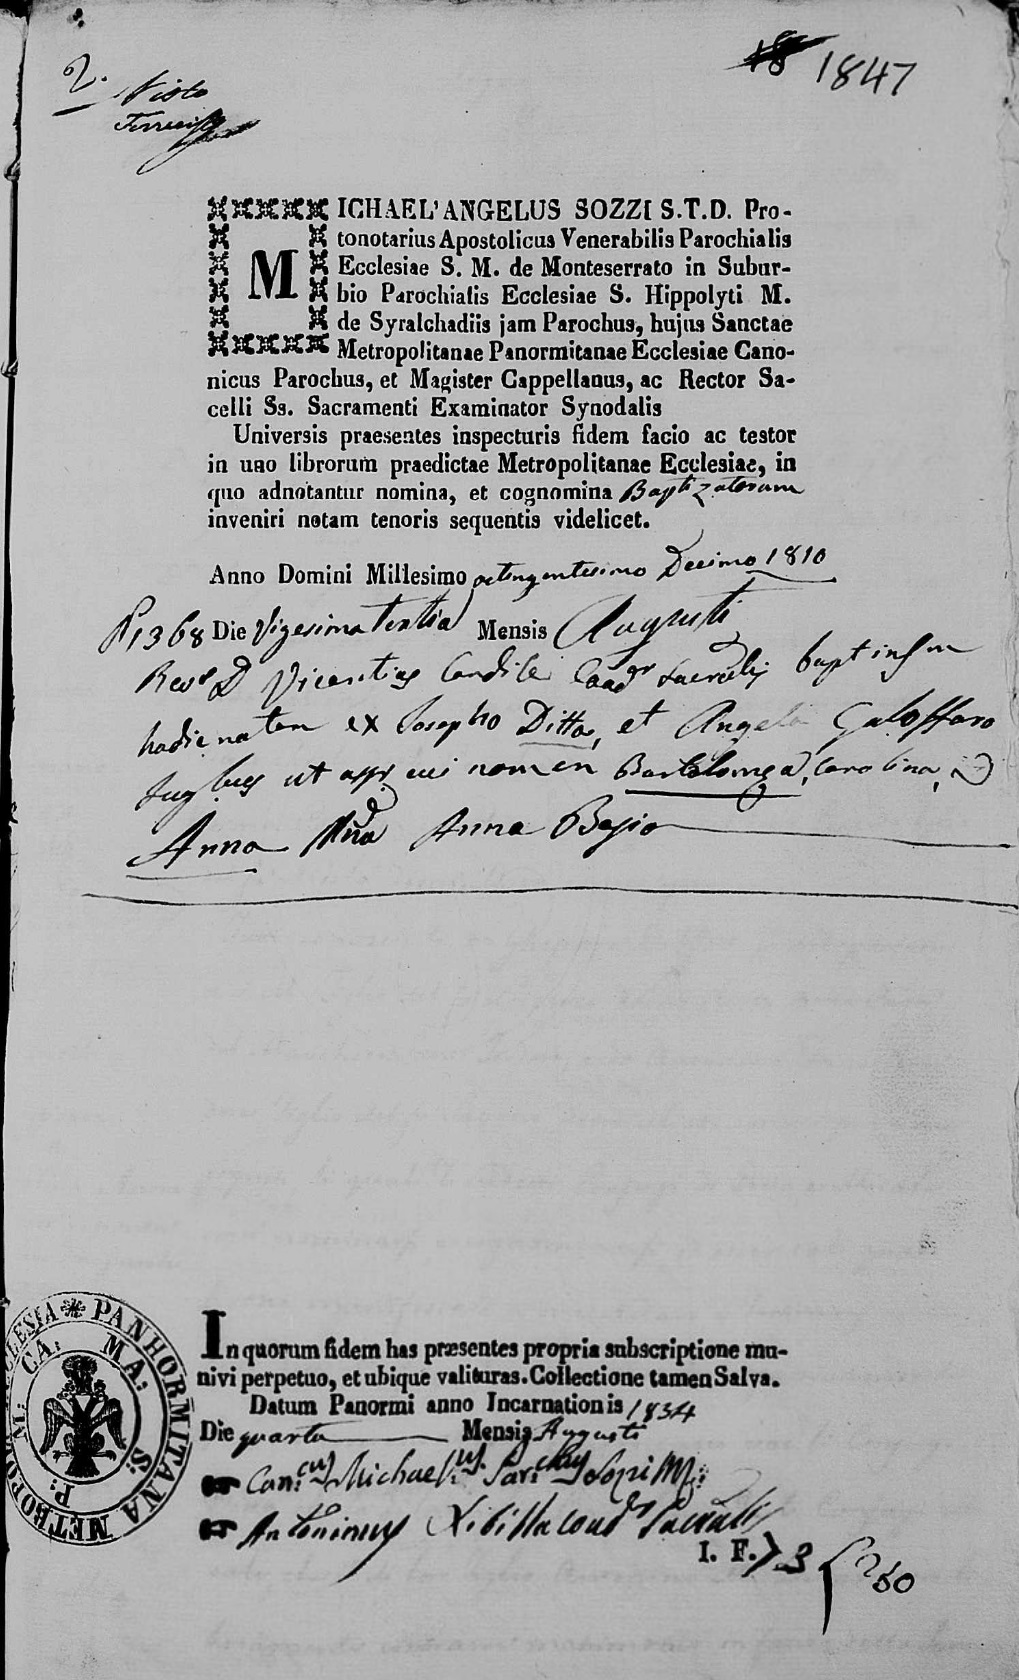 2. Visto
1847
MICHAEL' ANGELUS SOZZI S.T.D. Pro-
tonotarius Apostolicus Venerabilis Parochialis
Ecclesiae S. M. de Monteserrato in Subur-
bio Parochialis Ecclesiae S. Hippolyti M.
de Syralchadiis jam Parochus, hujus Sanctae
Metropolitanae Panormitanae Ecclesiae Cano-
nicus Parochus, et Magister Cappellanus, ac Rector Sa-
celli Ss. Sacramenti Examinator Synodalis
Universis praesentes inspecturis fidem facio ac testor
in uno librorum praedictae Metropolitanae Ecclesiae, in
quo adnotantur nomina, et cognomina Baptizatorum
inveniri notam tenoris sequentis videlicet.
Anno Domini Millesimo octingentesimo Decimo 1810
1368 Die Vigesima tertia Mensis Augusti
Revs D. Vicentius Candile Coadr Sacralis
hodie natam ex Josepho Ditta, et Angela Galoffaro
Jugbus ut appt cui nomen Bartolomea, Carolina,
Anna Mna Anna Basio
ECCLESIA PANHORMITANA METROPO
M: CA: MA: S: P:
In quorum fidem has præsentes propria subscriptione mu-
nivi perpetuo, et ubique valituras. Collectione tamen Salva.
Datum Panormi anno Incarnationis 1834
Die quarta Mensis Augusti
Can.cus Michael Parchus Sozzi
Antoninus Coadr
I. F. 73